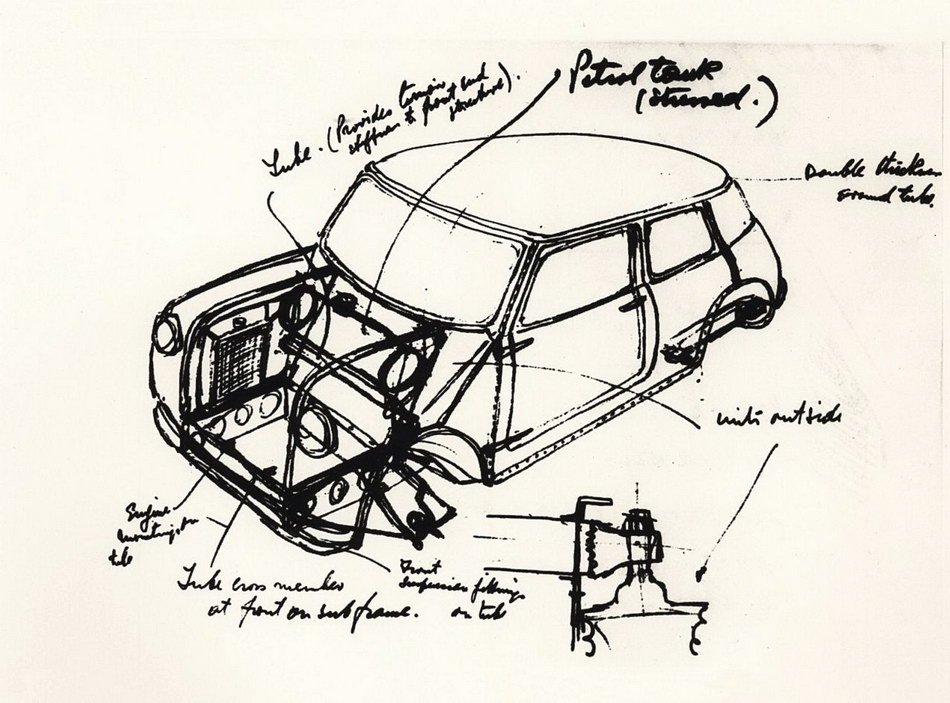 Petrol tank
(Stressed.)
Tube. (Provides torsion
stiffness to front end
structure).
Double thickness
around tube.
units outside
Engine
mountings on
tub
Tube cross member
at front on subframe.
Front
Suspension fittings
on tub